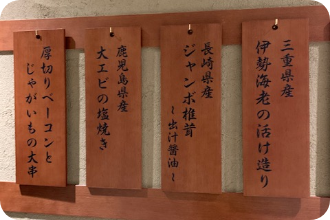 三重県産
伊勢海老の活け造り
長崎県産
ジャンボ椎茸
~出汁醤油~
鹿児島県産
大エビの塩焼き
厚切りベーコンと
じゃがいもの大串